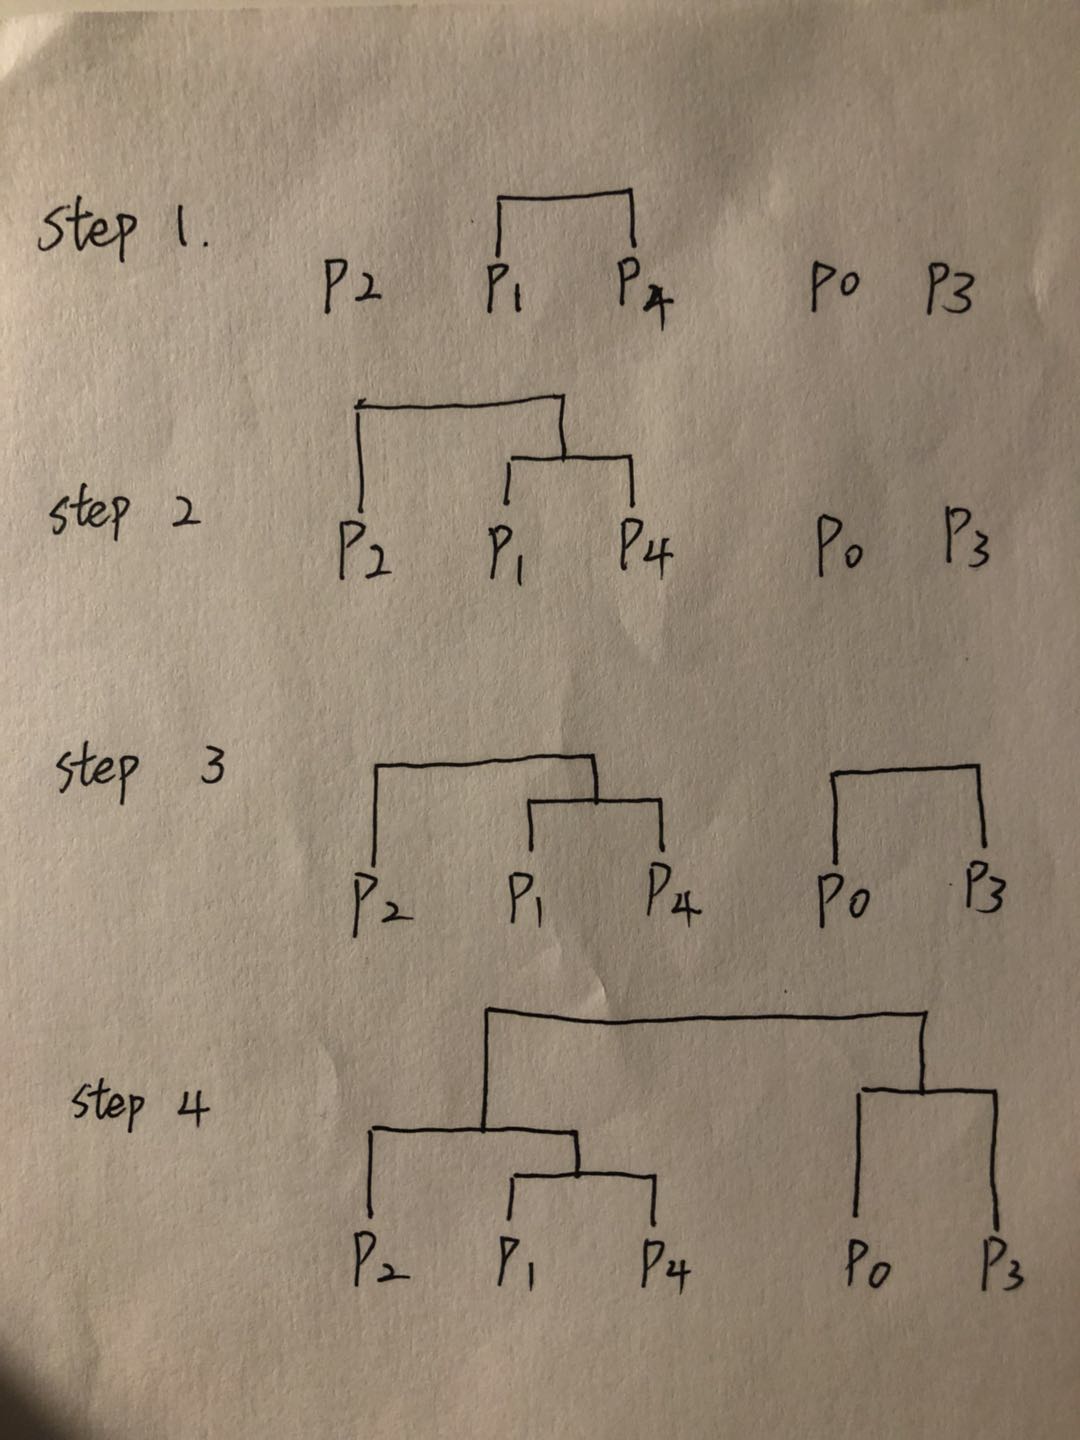 step 1.
P2 P1 P4 P0 P3
step 2
P2 P1 P4 P0 P3
step 3
P2 P1 P4 P0 P3
step 4
P2 P1 P4 P0 P3